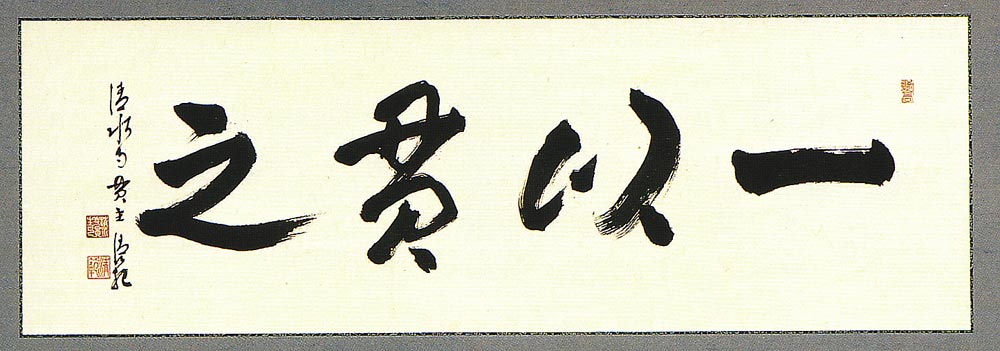 一以貫之
清水寺貫主 清範